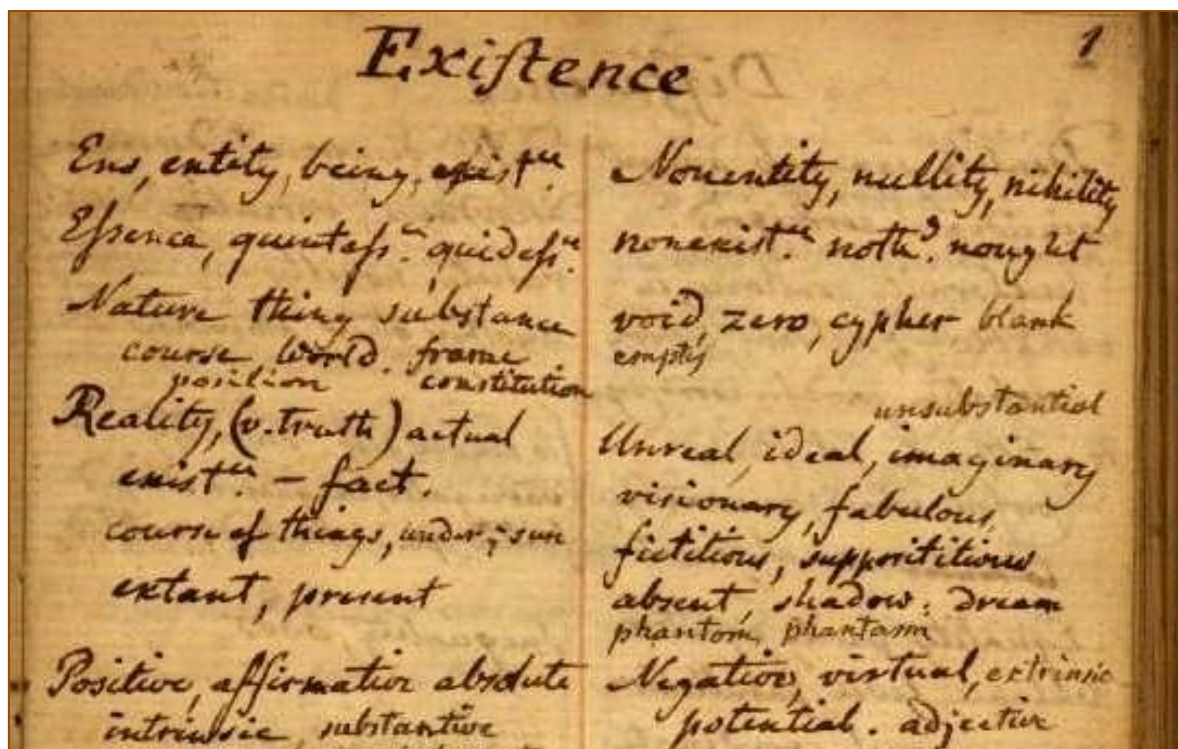 Existence
1
Ens, entity, being, existce.
Essence, quintessce. quidessce.
Nature thing substance
course, world. frame
position constitution
Reality, (v. truth) actual
existce. – fact.
course of things, under ; sun
extant, present
Positive, affirmative absolute
intrinsic, substantive
Nonentity, nullity, nihility
nonexistce. nothg. nought
void, zero, cypher blank
empty
unsubstantial
Unreal, ideal, imaginary
visionary, fabulous,
fictitious, supposititious
absent, shadow; dream
phantom, phantasm
Negative, virtual, extrinsic
potential. adjective